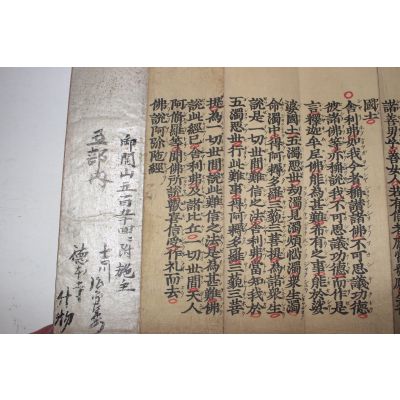 諸善男子善女人
國土
舍利弗如我今者稱讚諸佛不可思議功德
彼諸佛等亦稱說我不可思議功德而作是
言釋迦牟尼佛能爲甚難希有之事能於娑
婆國土五濁惡世劫濁見濁煩惱濁衆生濁
命濁中得阿耨多羅三藐三菩提爲諸衆生
說是一切世間難信之法舍利弗當知我於
五濁惡世行此難事得阿耨多羅三藐三菩
提爲一切世間說此難信之法是爲甚難佛
說此經已舍利弗及諸比丘一切世間天人
阿脩羅等聞佛所說歡喜信受作礼而去
佛說阿弥陀經
御開山五百年
附施主
五部内
什物